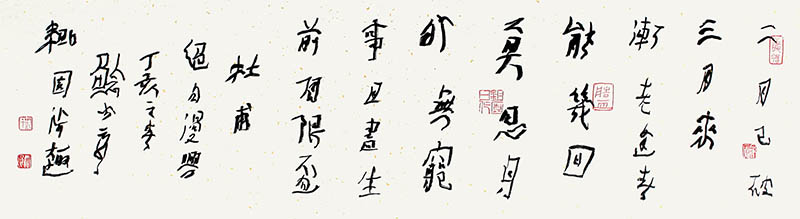 二月已破
三月來
漸老逢春
能幾回
莫思身
外無窮
事且盡生
前有限盃
杜甫
絕句漫興
丁亥之春